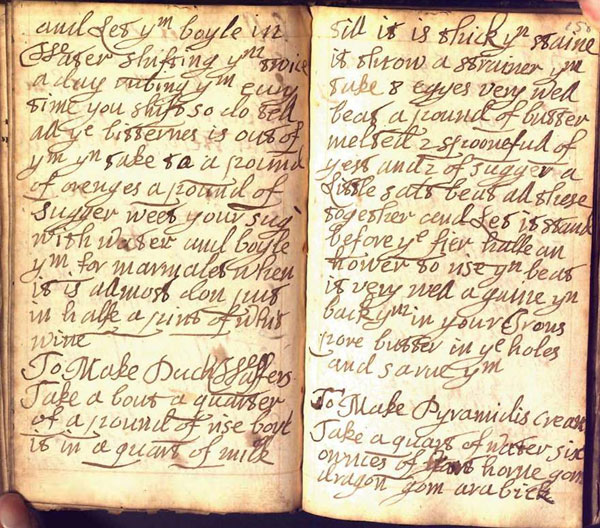 and Let ym boyle in
Water shifting ym twice
a day rubing ym every
time you shift so do tell
all ye bitternes is out of
ym yn take to a pound
of orenges a pound of
sugger weet your sug
with water and boyle
ym. for marmalet when
it is allmost don put
in halfe a pint of whit
wine
To Make Duch Waffers
Take a bout a quarter
of a pound of rise boyl
it in a quart of milk
150
till it is thick yn straine
it throw a strainer yn
take 8 egges very well
beat a pound of butter
melted 2 spoonefull of
yest and 2 of sugger a
Little salt beat all these
together and Let it stand
before ye fier halfe an
hower to rise yn beat
it very well a gaine yn
back ym in your Irons
pore butter in ye holes
and sarve ym
To Make Pyramidis cream
Take a quart of water six
ownies of harts horne gom
dragon gom arabick